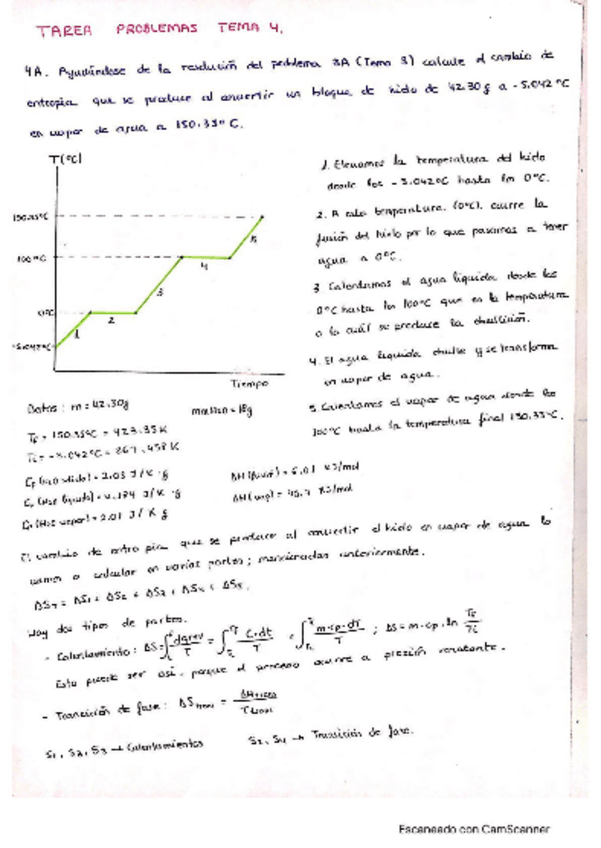 TAREA PROBLEMAS TEMA 4.
4A. Ayudándose de la resolución del problema 3A (Tema 3) calcule el cambio de
entropía que se produce al convertir un bloque de hielo de 42.30 g a -5.042 ºC
en vapor de agua a 150.35ºC.
T(ºC)
150.35ºC
100ºC
0ºC
-5.042ºC
1
2
3
4
5
Tiempo
1. Elevamos la temperatura del hielo
desde los -5.042ºC hasta los 0ºC.
2. A esta temperatura, (0ºC), ocurre la
fusión del hielo por lo que pasamos a tener
agua a 0ºC.
3 Calentamos el agua líquida desde los
0ºC hasta los 100ºC que es la temperatura
a la cuál se produce la ebullición.
4. El agua líquida ebulle y se transforma
en vapor de agua.
5. Calentamos el vapor de agua desde los
100ºC hasta la temperatura final 150.35ºC.
Datos: m = 42.30g
= 18g
= 150.35ºC = 423.35K
= -5.042ºC = 267.958 K
Cp (H2O sólido) = 2.03 J/K·g
Cp (H2O líquida) = 4.184 J/K·g
Cp (H2O vapor) = 2.01 J/K g
ΔH (fusión) = 6.01 KJ/mol
ΔH (vap) = 40.7 KJ/mol
El cambio de entropía que se produce al convertir el hielo en vapor de agua lo
vamos a calcular en varias partes; mencionadas anteriormente.
ΔS = ΔS1 + ΔS2 + ΔS3 + ΔS4 + ΔS5.
Hay dos tipos de partes.
- Calentamiento: ΔS = ∫ dqrev/T = ∫ C·dT/T = ∫ m·cp·dT/T ; ΔS = m·cp·ln
Esto puede ser así, porque el proceso ocurre a presión constante.
- Transición de fase: ΔStrans = ΔHtrans/Ttrans
S1, S3, S5 → Calentamientos
S2, S4 → Transición de fase.
Escaneado con CamScanner